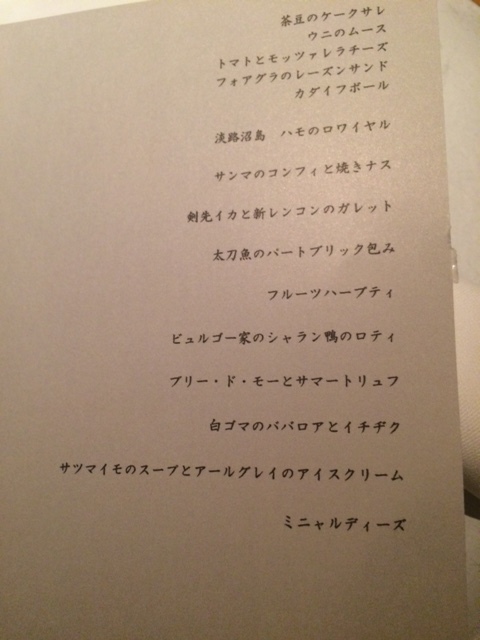 茶豆のケークサレ
ウニのムース
トマトとモッツァレラチーズ
フォアグラのレーズンサンド
カダイフボール
淡路沼島 ハモのロワイヤル
サンマのコンフィと焼きナス
剣先イカと新レンコンのガレット
太刀魚のパートブリック包み
フルーツハーブティ
ビュルゴー家のシャラン鴨のロティ
ブリー・ド・モーとサマートリュフ
白ゴマのババロアとイチヂク
サツマイモのスープとアールグレイのアイスクリーム
ミニャルディーズ